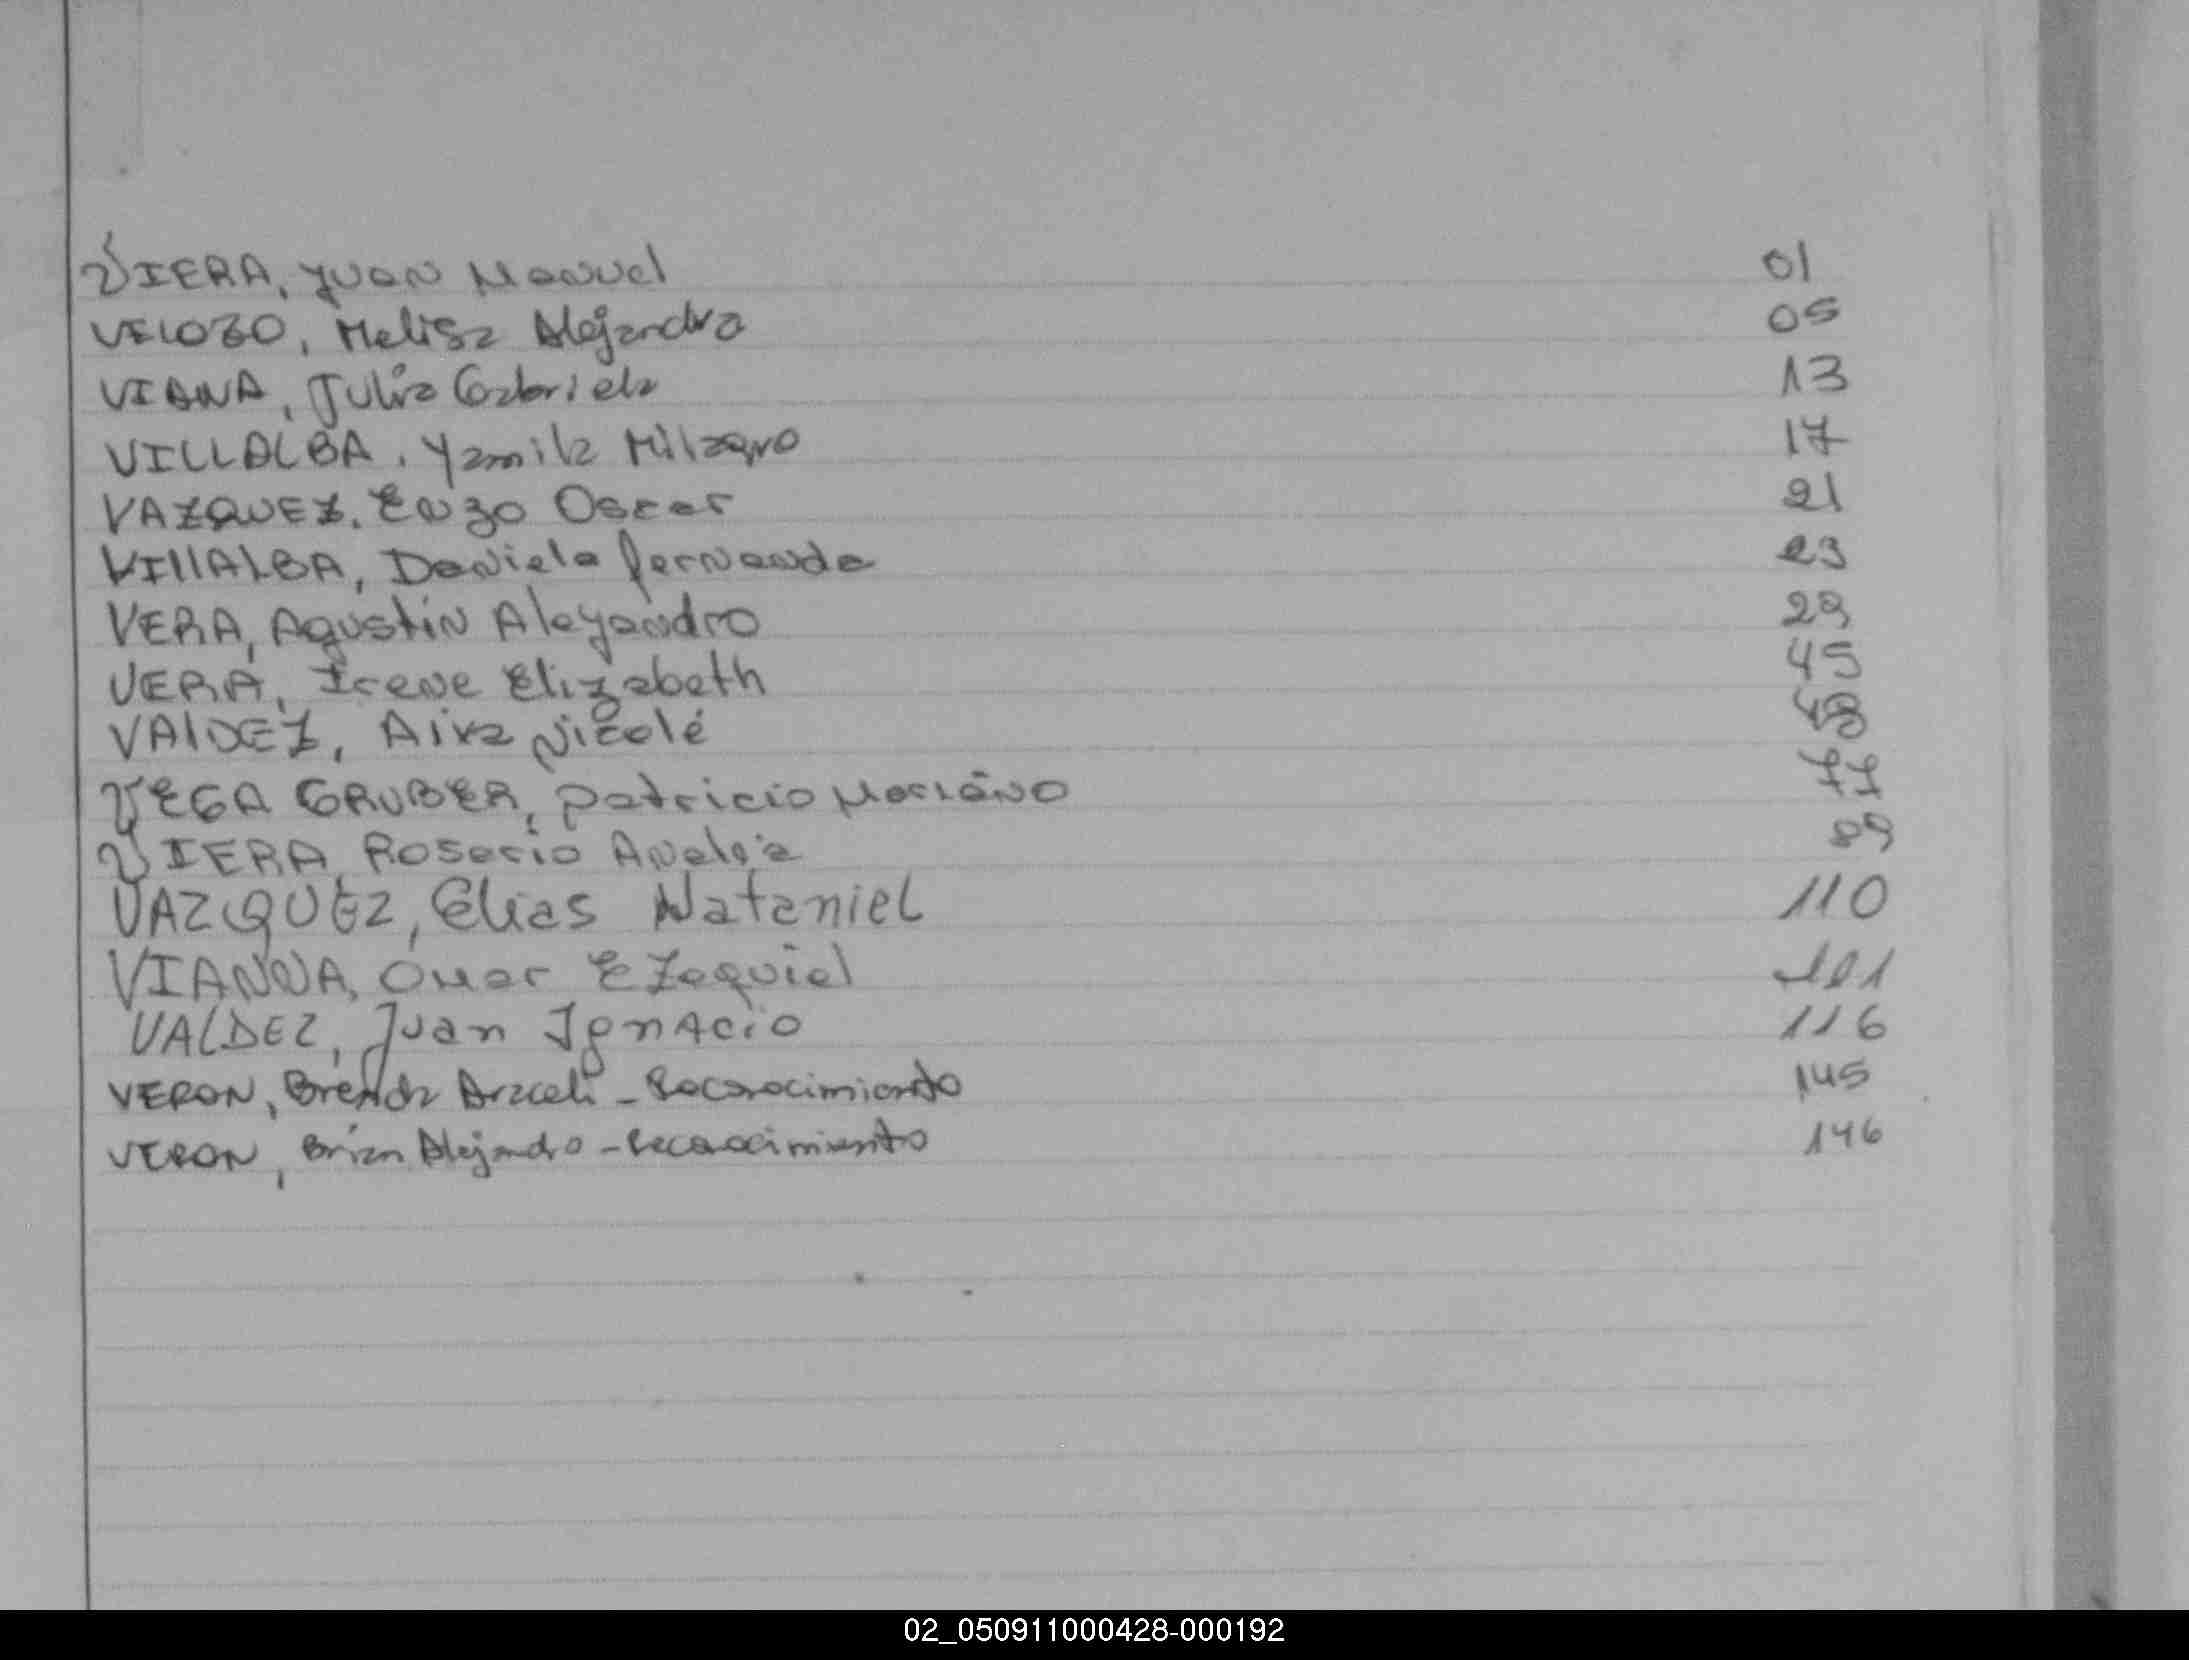 VIERA, Juan Manuel 01
VELOZO, Melisa Alejandra 05
VIANA, Julia Gabriela 13
VILLALBA, Yamila Milagro 17
VAZQUEZ, Enzo Oscar 21
VIllALBA, Daniela fernanda 23
VERA, Agustin Aleyandro 29
VERA, Irene Elizabeth 45
VAlDEZ, Nicole
VEGA GRUBER, patricio Mariano 77
VIERA, Rosario Analia 89
VAZQUEZ, Elias Nataniel 110
VIANNA, Omar EZequiel
VALDEZ, Juan Ignacio 116
VERON, Brenda Araceli - Reconocimiento 145
VERON, Brian Alejandro - Reconocimiento 146
02_050911000428-000192